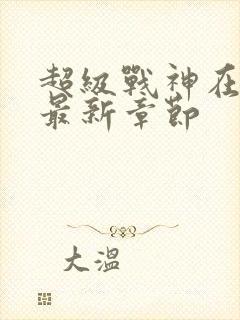 超級戰神在
最新章節
大溫